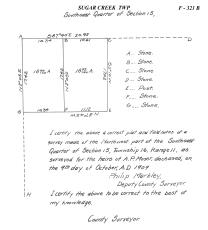 SUGAR CREEK TWP
F - 321 B
Southwest Quarter of Section 15,
A
B
C
D
A... Stone.
B... Stone.
C... Stone.
D... Stone.
E... Post.
F... Stone.
G... Stone.
H
I certify the above a correct plat and field notes of a
survey made of the Northwest part of the Southwest
Quarter of Section 15, Township 16, Range 11, as
surveyed for the heirs of A.P. Moyer, deceased, on
the 9th day of October, A.D. 1909
Philip Markley,
Deputy County Surveyor
I certify the above to be correct to the best of
my knowledge.
County Surveyor